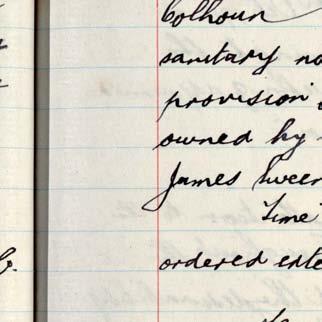 Colhoun
sanitary no
provision
owned by
James Sween
Time
ordered exte